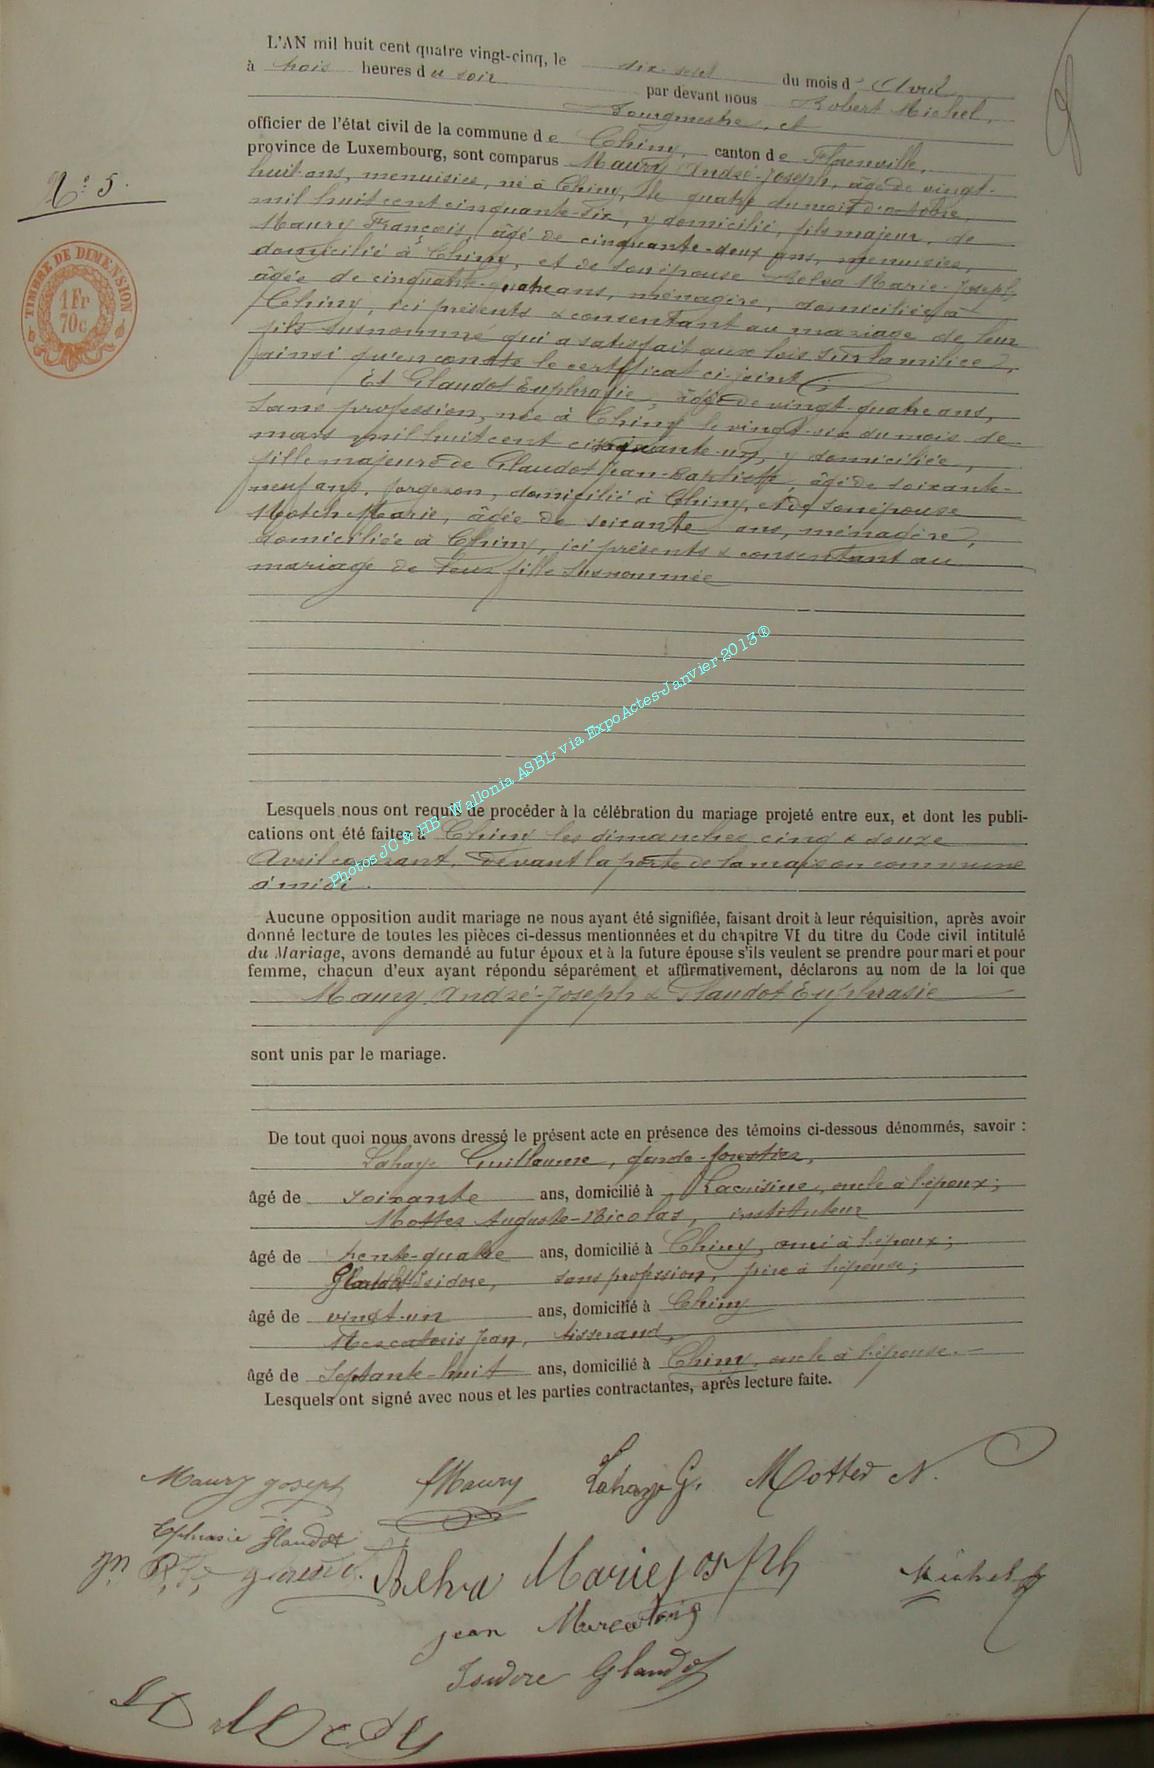 L'AN mil huit cent quatre vingt-cinq, le dix-sept du mois d' Avril
à trois heures du soir par devant nous Robert Michel,
Bourgmestre, et
officier de l'état civil de la commune de Chiny, canton de Florenville,
province de Luxembourg, sont comparus Maury André-Joseph, âgé de vingt-
huit ans, menuisier, né à Chiny, le quatre du mois d'octobre
mil huit cent cinquante-six, y domicilié, fils majeur, de
N.º 5.
Maury François, âgé de cinquante-deux ans, menuisier,
domicilié à Chiny, et de son épouse Belva Marie-Joseph,
âgée de cinquante-quatre ans, ménagère, domiciliée à
Chiny, ici présents & consentant au mariage de leur
fils susnommé qui a satisfait aux lois sur la milice,
ainsi qu'en constte le certificat ci-joint;
TIMBRE DE DIMENSION
1 Fr
70c
Et Glaudot Euphrasie, âgée de vingt-quatre ans,
sans profession, née à Chiny le vingt-six du mois de
mars mil huit cent cinquante-un, y domiciliée,
fille majeure de Glaudot Jean-Baptiste, âgé de soixante-
neuf ans, forgeron, domicilié à Chiny, et de son épouse
Marie, âgée de soixante ans, ménagère,
domiciliée à Chiny, ici présents & consentant au
mariage de leur fille susnommée
Photos JC & HB - Wallonia ASBL- via ExpoActes-Janvier 2013®
Lesquels nous ont requis de procéder à la célébration du mariage projeté entre eux, et dont les publi-
cations ont été faites à Chiny les dimanches cinq & douze
Avril courant, devant la porte de la maison commune
à midi.
Aucune opposition audit mariage ne nous ayant été signifiée, faisant droit à leur réquisition, après avoir
donné lecture de toutes les pièces ci-dessus mentionnées et du chapitre VI du titre du Code civil intitulé
du Mariage, avons demandé au futur époux et à la future épouse s'ils veulent se prendre pour mari et pour
femme, chacun d'eux ayant répondu séparément et affirmativement, déclarons au nom de la loi que
Maury André-Joseph & Glaudot Euphrasie
sont unis par le mariage.
De tout quoi nous avons dressé le présent acte en présence des témoins ci-dessous dénommés, savoir :
Lahaye Guillaume, garde-forestier,
âgé de soixante ans, domicilié à Lacuisine, oncle à l'époux;
Motter Auguste-Nicolas, instituteur
âgé de trente-quatre ans, domicilié à Chiny, ami à l'époux;
Glaudot Isidore, sans profession, frère à l'épouse;
âgé de vingt-un ans, domicilié à Chiny
Mercatoris Jean, tisserand,
âgé de septante-huit ans, domicilié à Chiny, oncle à l'épouse.
Lesquels ont signé avec nous et les parties contractantes, après lecture faite.
Maury Joseph fMaury Lahaye G. Motter N.
Ephrasie Glaudot
Belva Marie Joseph Michel
Jean
Isidore Glaudot